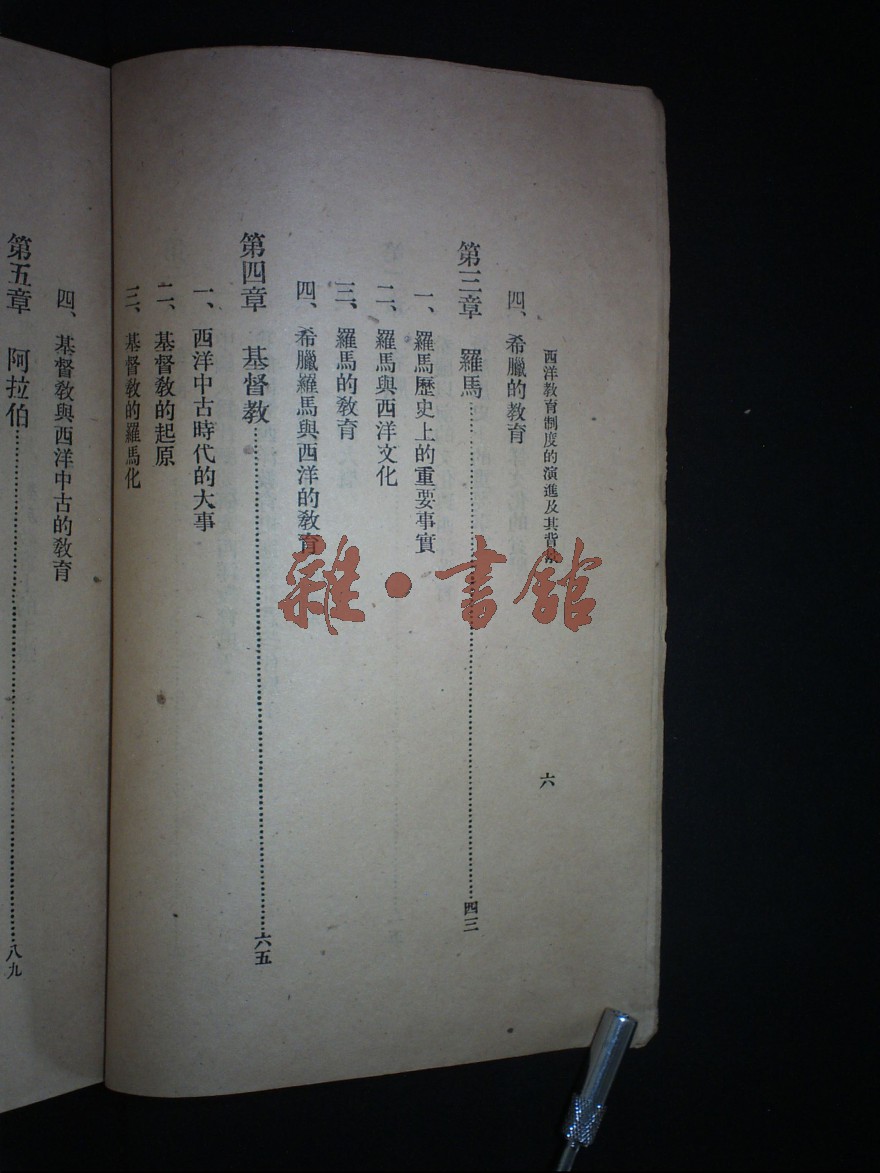 西洋教育制度的演進及其背景
六
四、希臘的教育
第三章　羅馬……四三
一、羅馬歷史上的重要事實
二、羅馬與西洋文化
三、羅馬的教育
四、希臘羅馬與西洋的教育
第四章　基督教……六五
一、西洋中古時代的大事
二、基督教的起原
三、基督教的羅馬化
四、基督教與西洋中古的教育
第五章　阿拉伯……八九
雜·書館